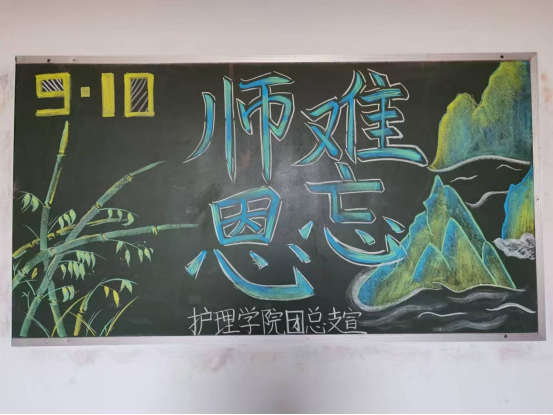 9·10
师难
恩忘
护理学院团总支宣